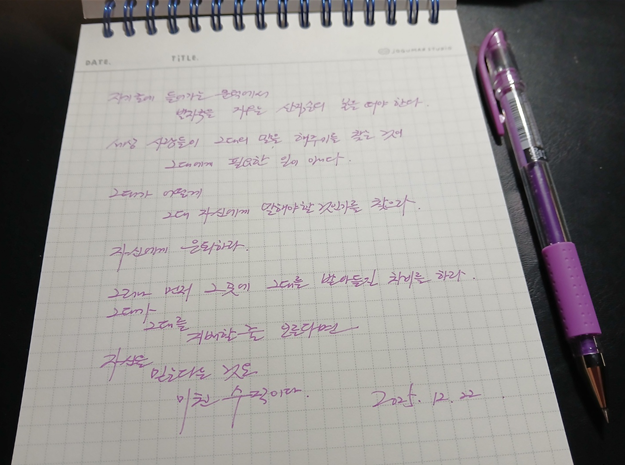 DATE.
TITLE.
자기 굴에 들어가는 문턱에서
발자국을 지우는 산짐승의 본을 따야 한다.
세상 사람들이 그대의 말을 해주기를 찾는 것이
그대에게 필요한 일이 아니다.
그대가 어떻게
그대 자신에게 말해야 할 것인가를 찾으라.
자신에게 은퇴하라.
그러나 먼저 그곳에 그대를 받아들일 차비를 하라.
그대가
그대를
지배할 줄 모른다면
자신을
믿는다는 것은
미친 수작이다.
2025. 12. 22